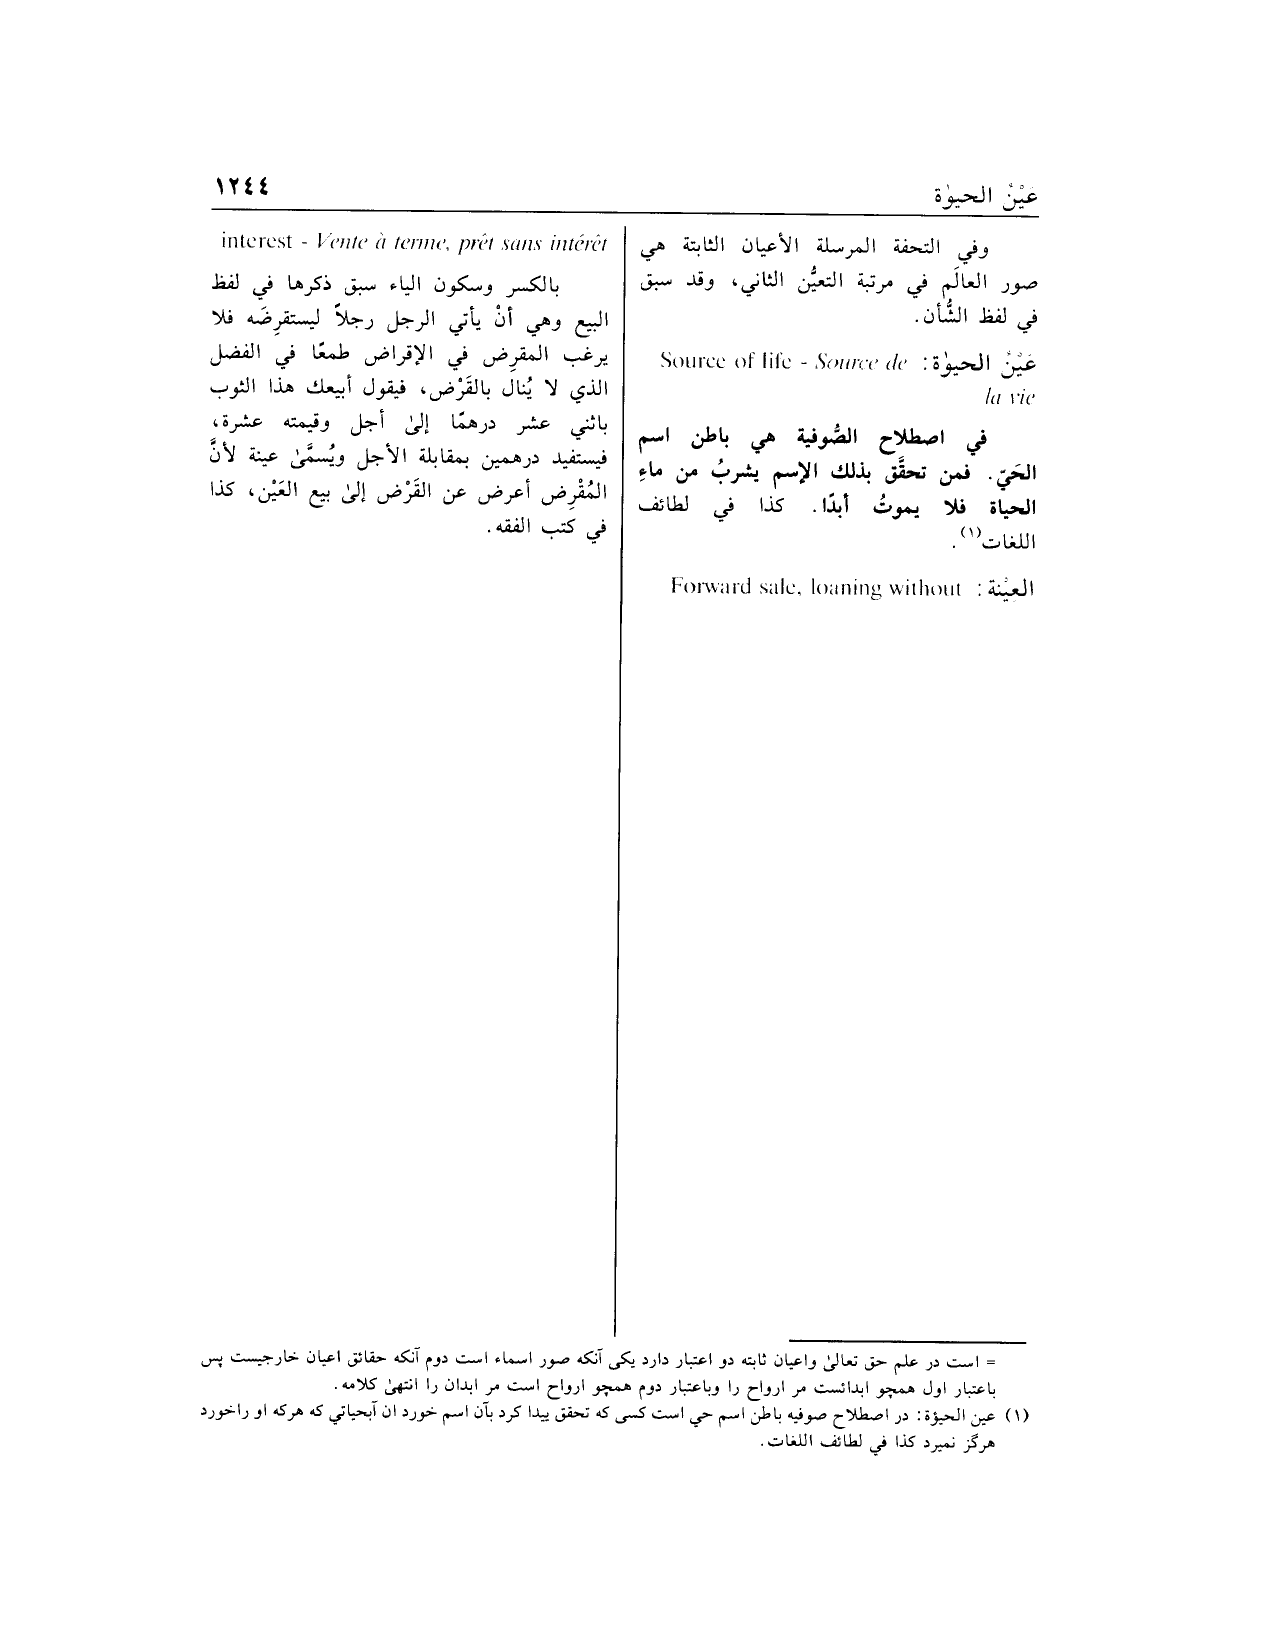 عَيْنُ الحيوٰة
١٢٤٤
وفي التحفة المرسلة الأعيان الثابتة هي
صور العالَم في مرتبة التعيُّن الثاني، وقد سبق
في لفظ الشّأن.
عَيْنُ الحيوٰة: Source of life - Source de
la vie
في اصطلاح الصُّوفية هي باطن اسم
الحَيّ. فمن تحقَّق بذلك الإسم يشربُ من ماءِ
الحياة فلا يموتُ أبدًا. كذا في لطائف
اللغات(١).
العيْنة: Forward sale, loaning without
interest - Vente à terme, prêt sans intérêt
بالكسر وسكون الياء سبق ذكرها في لفظ
البيع وهي أنْ يأتي الرجل رجلاً ليستقرِضَه فلا
يرغب المقرِض في الإقراض طمعًا في الفضل
الذي لا يُنال بالقَرْض، فيقول أبيعك هذا الثوب
باثني عشر درهمًا إلىٰ أجل وقيمته عشرة،
فيستفيد درهمين بمقابلة الأجل ويُسمَّىٰ عينة لأنَّ
المُقْرِض أعرض عن القَرْض إلىٰ بيع العَيْن، كذا
في كتب الفقه.
= است در علم حق تعالىٰ واعيان ثابته دو اعتبار دارد يكى آنكه صور اسماء است دوم آنكه حقائق اعيان خارجيست پس
باعتبار اول همچو ابدانست مر ارواح را وباعتبار دوم همچو ارواح است مر ابدان را انتهىٰ كلامه.
(١) عين الحيوٰة: در اصطلاح صوفيه باطن اسم حي است كسى كه تحقق پيدا كرد بآن اسم خورد ان آبحياتي كه هركه او راخورد
هرگز نميرد كذا في لطائف اللغات.